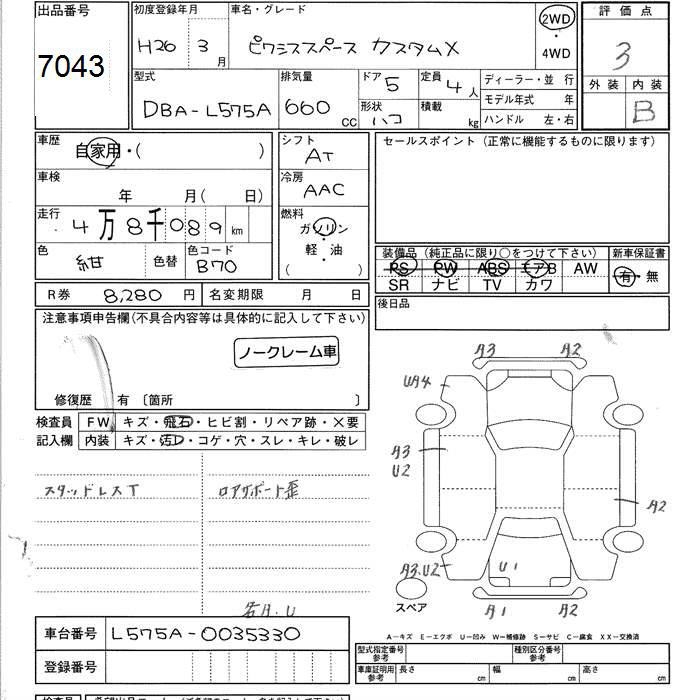 出品番号
7043
初度登録年月
H26 3月
車名・グレード
ピクシススペース カスタムX
2WD
・
4WD
評価点
3
外装 内装
B
型式
DBA-L575A
排気量
660 CC
ドア 5
形状 ハコ
定員 4人
積載 kg
ディーラー・並行
モデル年式 年
ハンドル 左・右
車歴
自家用・( )
車検
年 月( 日)
走行
4万8千089km
色
紺
色替
色コード
B70
シフト
AT
冷房
AAC
燃料
ガソリン
・
軽・油
( )
セールスポイント(正常に機能するものに限ります)
装備品(純正品に限り○をつけて下さい)
PS PW ABS エアB AW
SR ナビ TV カワ
新車保証書
有・無
後日品
R券 8,280円
名変期限 月 日
注意事項申告欄(不具合内容等は具体的に記入して下さい)
ノークレーム車
修復歴 有〔箇所 〕
検査員
記入欄
FW キズ・飛石・ヒビ割・リペア跡・×要
内装 キズ・汚レ・コゲ・穴・スレ・キレ・破レ
スタッドレスT
ロアサポート歪
若A.U
A3 A2
UA4
A3
U2
A2
A3.U2
U1
A1 A2
スペア
A―キズ E―エクボ U―凹み W―補修跡 S―サビ C―腐食 XX―交換済
車台番号 L575A-0035330
登録番号
型式指定番号
参考
種別区分番号
参考
車庫証明用
参考
長さ cm
幅 cm
高さ cm